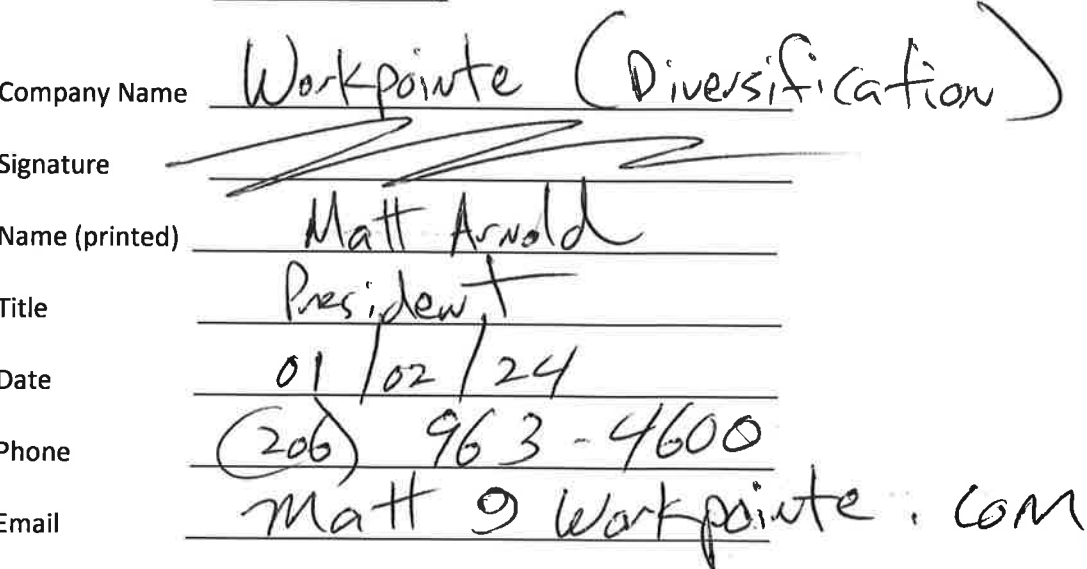 Company Name Workpointe (Diversification)
Signature
Name (printed) Matt Arnold
Title President
Date 01/02/24
Phone (206) 963-4600
Email Matt @ Workpointe.com